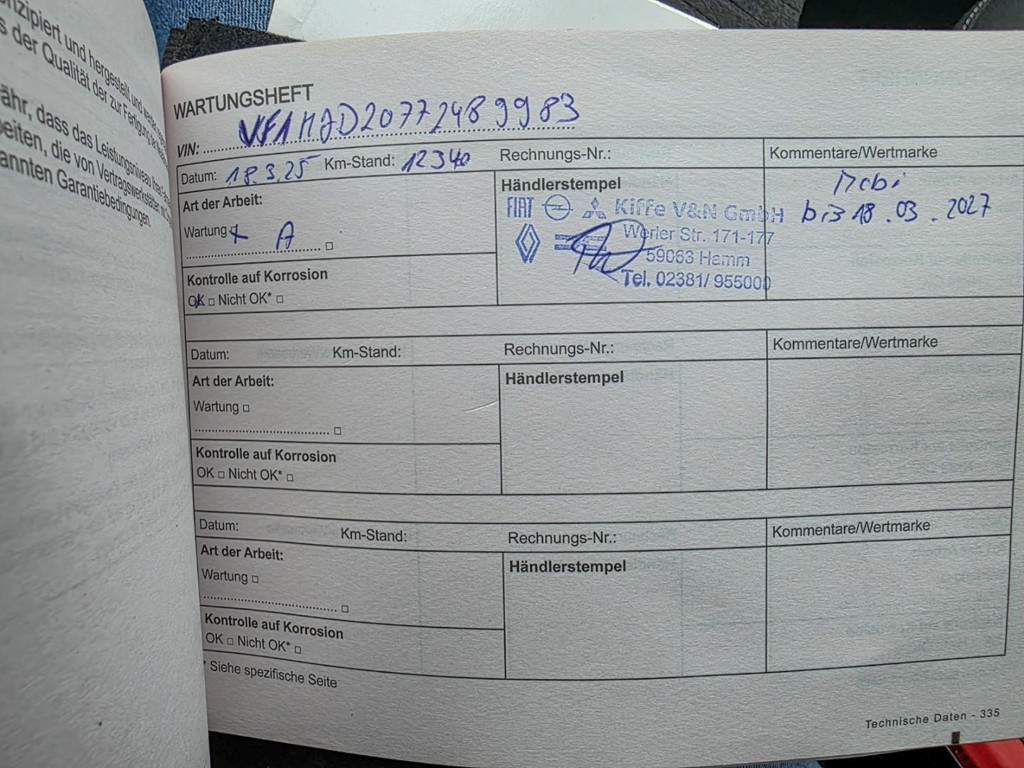 nzipiert und hergestellt und
s der Qualität der zur Fertigung
ähr, dass das Leistungsniveau
eiten, die von Vertragswerkstätten
annten Garantiebedingungen.
WARTUNGSHEFT
VIN: VF1MJD20772489983
Datum: 18.3.25 Km-Stand: 12340 Rechnungs-Nr.: Kommentare/Wertmarke
Art der Arbeit:
Wartung A
Kontrolle auf Korrosion
OK □ Nicht OK* □
Händlerstempel
FIAT Kiffe V&N GmbH
Werler Str. 171-177
59063 Hamm
Tel. 02381/ 955000
Mobi
bis 18.03.2027
Datum: Km-Stand: Rechnungs-Nr.: Kommentare/Wertmarke
Art der Arbeit:
Wartung □
Kontrolle auf Korrosion
OK □ Nicht OK* □
Händlerstempel
Datum: Km-Stand: Rechnungs-Nr.: Kommentare/Wertmarke
Art der Arbeit:
Wartung □
Kontrolle auf Korrosion
OK □ Nicht OK* □
Händlerstempel
* Siehe spezifische Seite
Technische Daten - 335